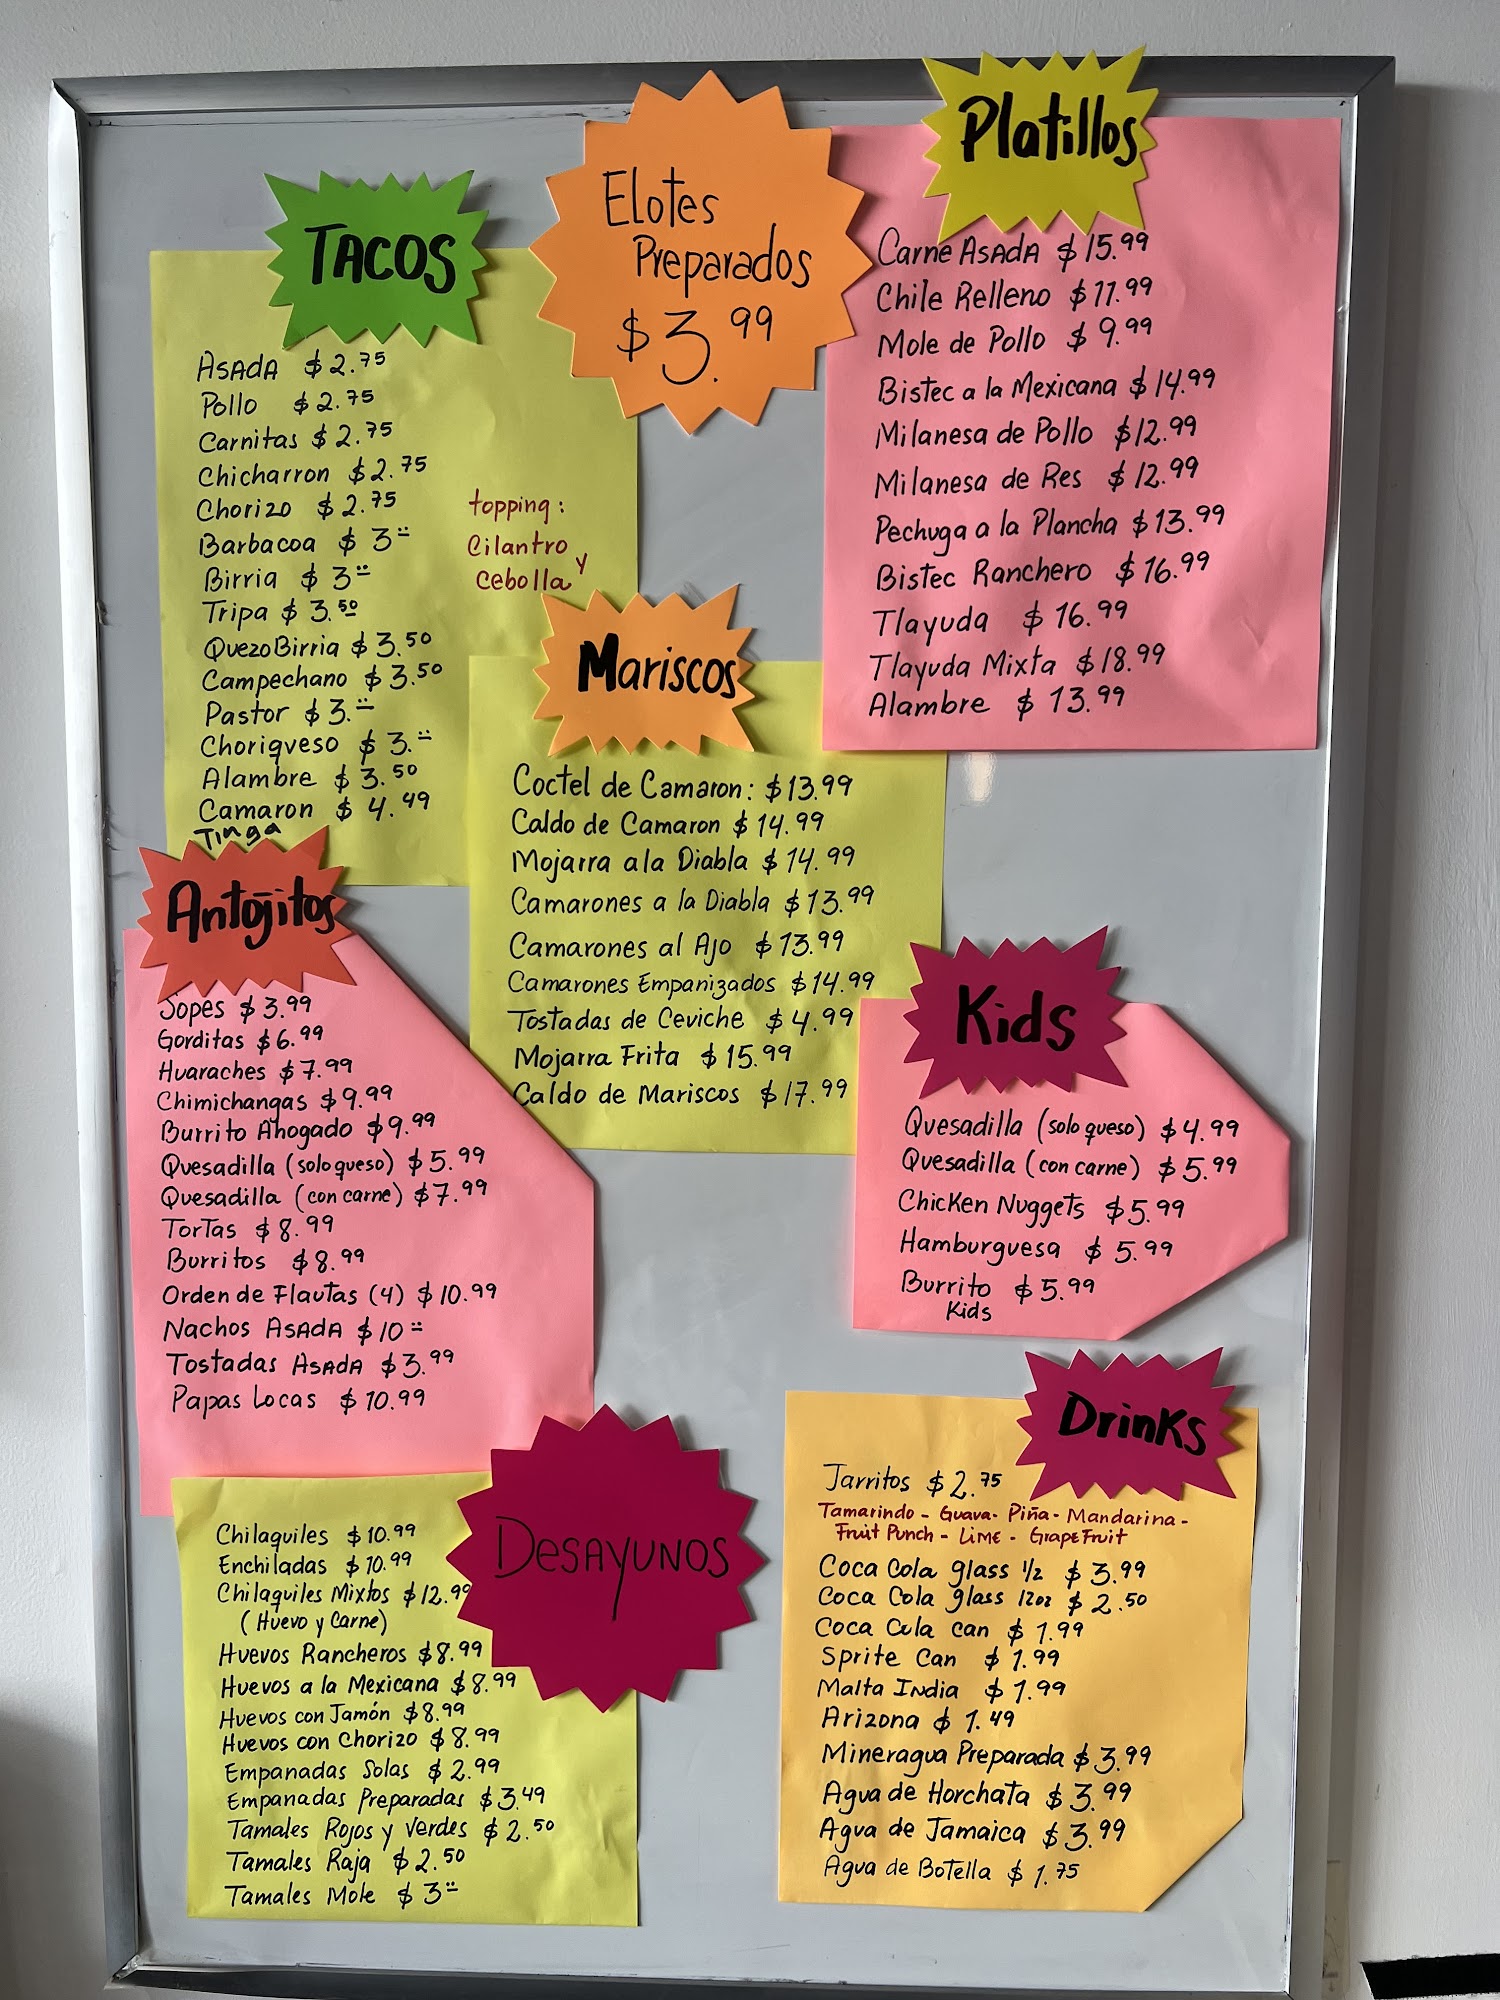 TACOS
ASADA $2.75
Pollo $2.75
Carnitas $2.75
Chicharron $2.75
Chorizo $2.75
Barbacoa $3.00
Birria $3.00
Tripa $3.50
QuezoBirria $3.50
Campechano $3.50
Pastor $3.00
Choriqueso $3.00
Alambre $3.50
Camaron $4.49
Tinga
topping:
Cilantro y
cebolla
Elotes
Preparados
$3.99
Platillos
Carne ASADA $15.99
Chile Relleno $11.99
Mole de Pollo $9.99
Bistec a la Mexicana $14.99
Milanesa de Pollo $12.99
Milanesa de Res $12.99
Pechuga a la Plancha $13.99
Bistec Ranchero $16.99
Tlayuda $16.99
Tlayuda Mixta $18.99
Alambre $13.99
Mariscos
Coctel de Camaron: $13.99
Caldo de Camaron $14.99
Mojarra ala Diabla $14.99
Camarones a la Diabla $13.99
Camarones al Ajo $13.99
Camarones Empanizados $14.99
Tostadas de Ceviche $4.99
Mojarra Frita $15.99
Caldo de Mariscos $17.99
Antojitos
Sopes $3.99
Gorditas $6.99
Huaraches $7.99
Chimichangas $9.99
Burrito Ahogado $9.99
Quesadilla (solo queso) $5.99
Quesadilla (con carne) $7.99
Tortas $8.99
Burritos $8.99
Orden de Flautas (4) $10.99
Nachos ASADA $10.00
Tostadas ASADA $3.99
Papas Locas $10.99
Kids
Quesadilla (solo queso) $4.99
Quesadilla (con carne) $5.99
Chicken Nuggets $5.99
Hamburguesa $5.99
Burrito $5.99
Kids
DESAYUNOS
Chilaquiles $10.99
Enchiladas $10.99
Chilaquiles Mixtos $12.99
(Huevo y Carne)
Huevos Rancheros $8.99
Huevos a la Mexicana $8.99
Huevos con Jamón $8.99
Huevos con Chorizo $8.99
Empanadas Solas $2.99
Empanadas Preparadas $3.49
Tamales Rojos y Verdes $2.50
Tamales Raja $2.50
Tamales Mole $3.00
Drinks
Jarritos $2.75
Tamarindo - Guava - Piña - Mandarina -
Fruit Punch - LIME - GrapeFruit
Coca Cola glass 1/2 $3.99
Coca Cola glass 12oz $2.50
Coca Cola can $1.99
Sprite Can $1.99
Malta India $1.99
Arizona $1.49
Mineragua Preparada $3.99
Agua de Horchata $3.99
Agua de Jamaica $3.99
Agua de Botella $1.75